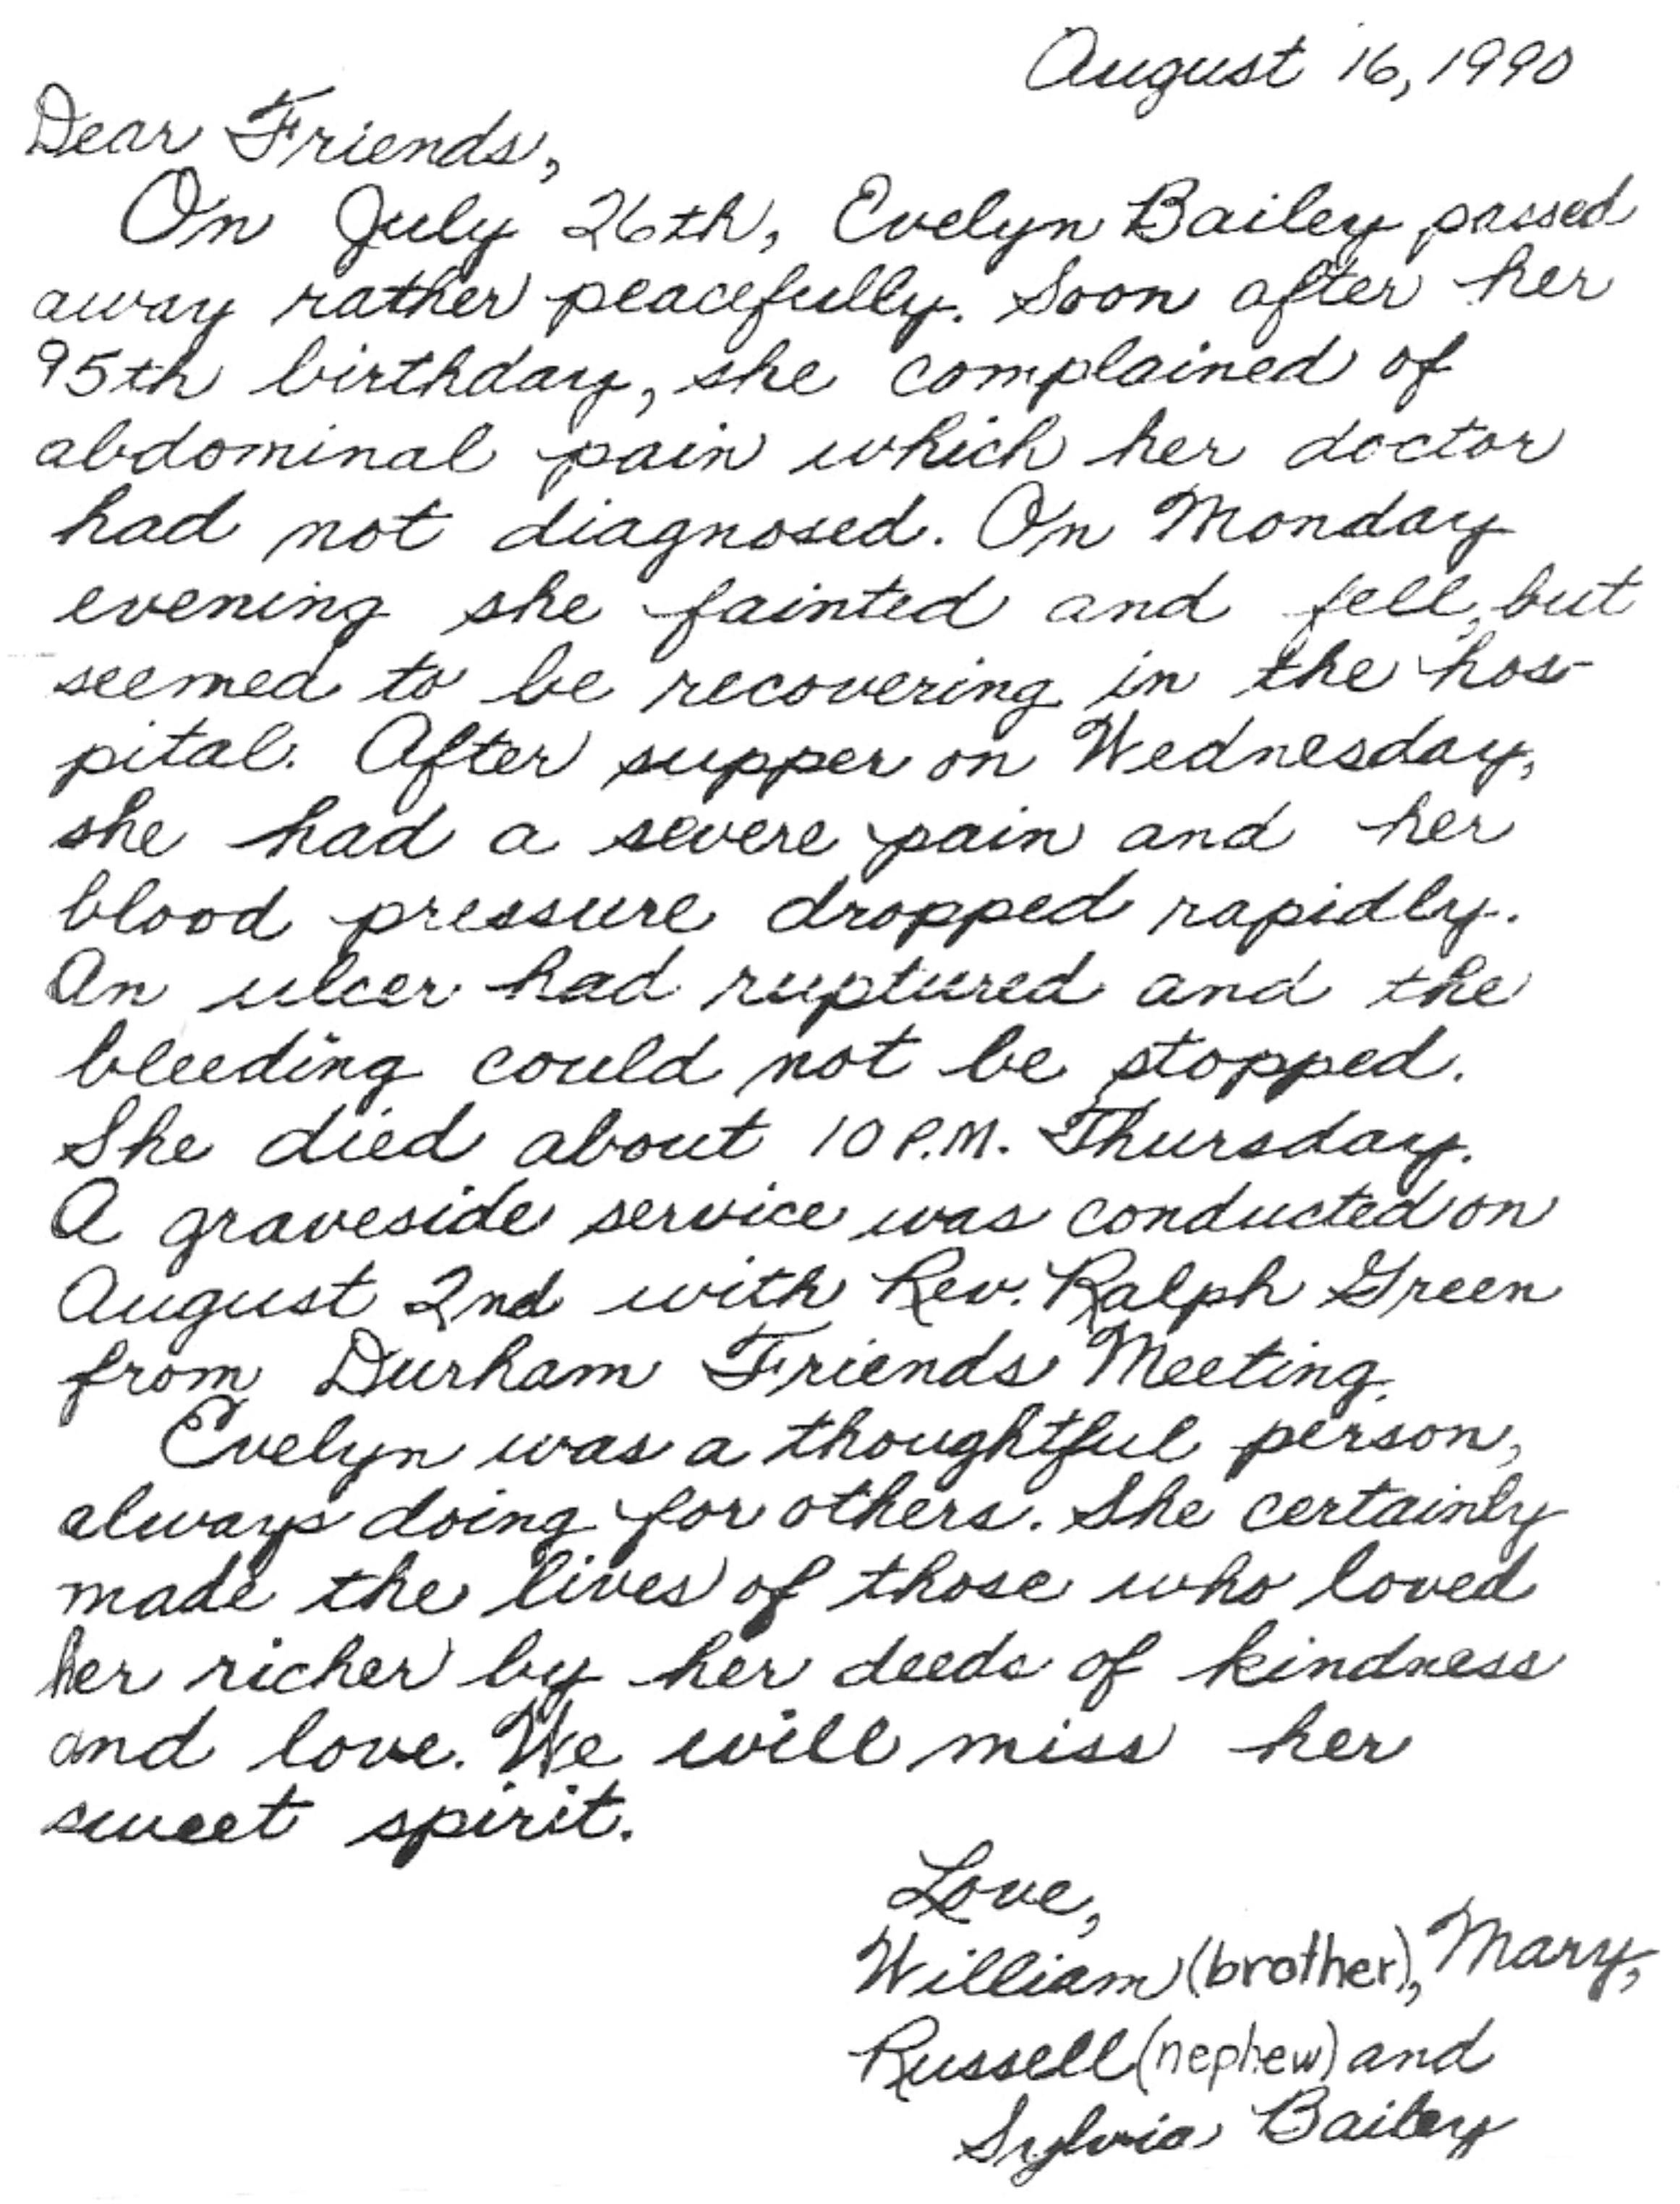 August 16, 1990
Dear Friends,
On July 26th, Evelyn Bailey passed
away rather peacefully. Soon after her
95th birthday, she complained of
abdominal pain which her doctor
had not diagnosed. On Monday
evening she fainted and fell, but
seemed to be recovering in the hos-
pital. After supper on Wednesday,
she had a severe pain and her
blood pressure dropped rapidly.
An ulcer had ruptured and the
bleeding could not be stopped.
She died about 10 P.M. Thursday.
A graveside service was conducted on
August 2nd with Rev. Ralph Green
from Durham Friends Meeting.
Evelyn was a thoughtful person,
always doing for others. She certainly
made the lives of those who loved
her richer by her deeds of kindness
and love. We will miss her
sweet spirit.
Love,
William (brother), Mary,
Russell (nephew) and
Sylvia Bailey